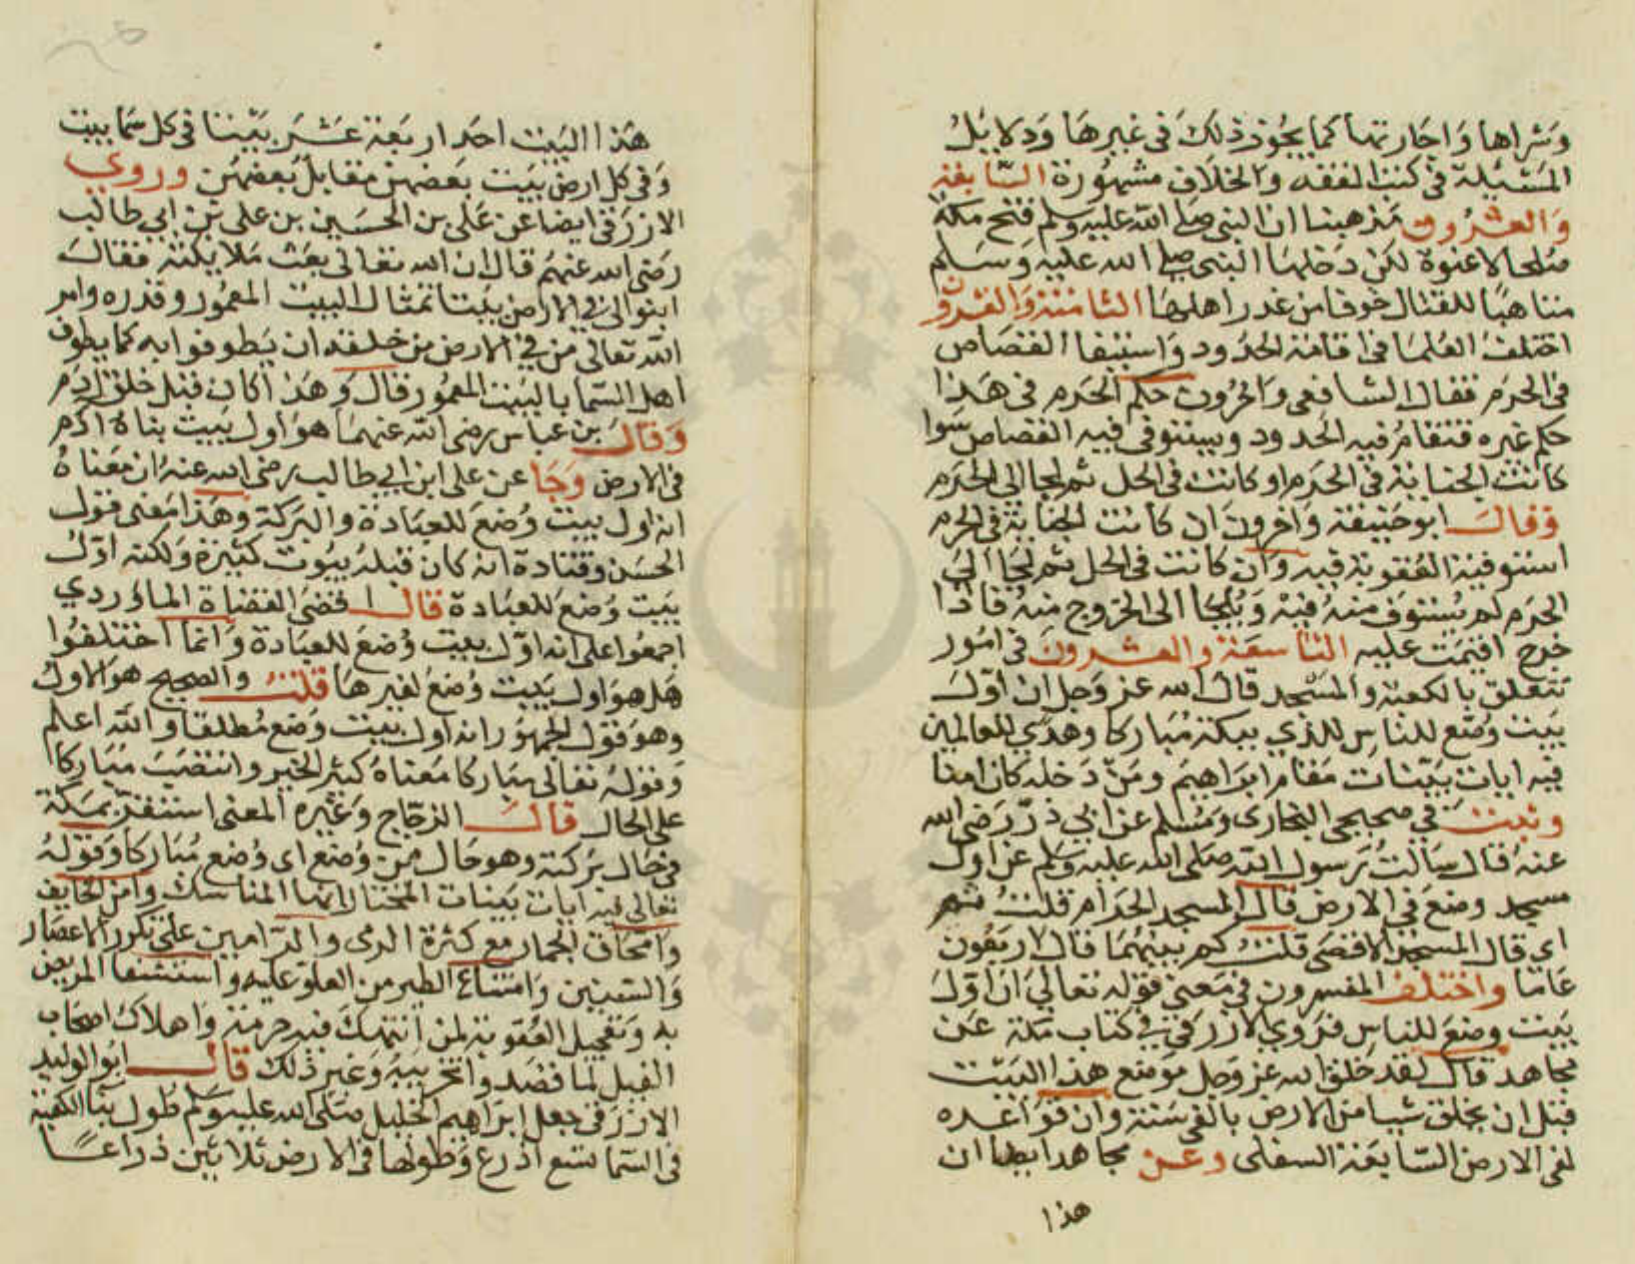 وشراها واجارتها كما يجوز ذلك في غيرها ودلايل
المسئلة في كتب الفقه والخلاف مشهورة السابعة
والعشرون مذهبنا ان النبي صلى الله عليه وسلم فتح مكة
صلحا لا عنوة لكن دخلها النبي صلى الله عليه وسلم
متاهبا للقتال خوفا من غدر اهلها الثامنة والعشرون
اختلف العلما في اقامة الحدود واستيفا القصاص
في الحرم فقال الشافعي واخرون حكم الحرم في هذا
حكم غيره فتقام فيه الحدود ويستوفى فيه القصاص سوا
كانت الجناية في الحرم او كانت في الحل ثم لجا الى الحرم
وقال ابو حنيفة واخرون ان كانت الجناية في الحرم
استوفية العقوبة فيه وان كانت في الحل ثم لجا الى
الحرم لم تستوف منه فيه ويلجا الى الخروج منه فاذا
خرج اقيمت عليه التاسعة والعشرون في امور
تتعلق بالكعبة والمسجد قال الله عز وجل ان اول
بيت وضع للناس للذي ببكة مباركا وهدى للعالمين
فيه ايات بينات مقام ابراهيم ومن دخله كان امنا
وثبت في صحيحي البخاري ومسلم عن ابي ذر رضي الله
عنه قال سالت رسول الله صلى الله عليه وسلم عن اول
مسجد وضع في الارض قال المسجد الحرام قلت ثم
اي قال المسجد الاقصى قلت كم بينهما قال اربعون
عاما واختلف المفسرون في معنى قوله تعالى ان اول
بيت وضع للناس فروي الازرقي في كتاب مكة عن
مجاهد قال لقد خلق الله عز وجل موضع هذا البيت
قبل ان يخلق شيا من الارض بالفي سنة وان قواعده
لفي الارض السابعة السفلى وعن مجاهد ايضا ان
هذا
هذا البيت احد اربعة عشر بيتا في كل سما بيت
وفي كل ارض بيت بعضهن مقابل بعضهن وروي
الازرقي ايضا عن على بن الحسين بن علي بن ابي طالب
رضي الله عنهم قال ان الله تعالى بعث ملايكته فقال
ابنوا لي في الارض بيتا تمثال البيت المعمور وقدره وامر
الله تعالى من في الارض من خلقه ان يطوفوا به كما يطوف
اهل السما بالبيت المعمور قال وهذا كان قبل خلق ادم
وقال بن عباس رضي الله عنهما هو اول بيت بناه ادم
في الارض وجا عن على ابن ابي طالب رضي الله عنه ان معناه
انه اول بيت وضع للعبادة والبركة وهذا معنى قول
الحسن وقتادة انه كان قبله بيوت كثيرة ولكنه اول
بيت وضع للعبادة قال اقضى القضاة الماوردي
اجمعوا على انه اول بيت وضع للعبادة وانما اختلفوا
هل هو اول بيت وضع لغيرها قلت والصحيح هو الاول
وهو قول الجمهور انه اول بيت وضع مطلقا والله اعلم
وقوله تعالى مباركا معناه كثير الخير وانتصب مباركا
على الحال قال الزجاج وغيره المعنى استقر بمكة
في حال بركته وهو حال من وضع اي وضع مباركا وقوله
تعالى فيه ايات بينات المختار انها المناسك وامن الخايف
وامحاق الجمار مع كثرة الرمى والرامين على تكرر الاعصار
والسنين وامتناع الطير من العلو عليه واستشفا المريض
به وتعجيل العقوبة لمن انتهك فيه حرمته واهلاك اصحاب
الفيل لما قصدوا تخريبه وغير ذلك قال ابو الوليد
الازرقي جعل ابراهيم الخليل صلى الله عليه وسلم طول بنا الكعبة
في السما تسع اذرع وطولها في الارض ثلاثين ذراعا